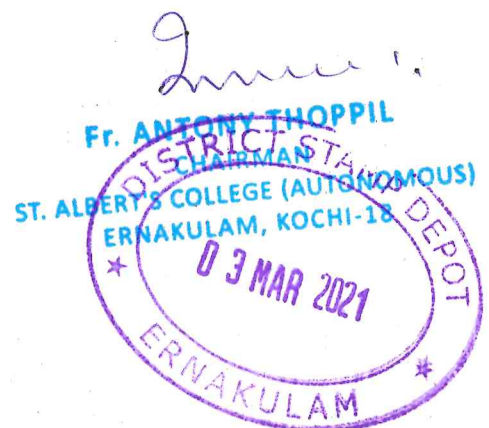 Fr. ANTONY THOPPIL
CHAIRMAN
ST. ALBERT'S COLLEGE (AUTONOMOUS)
ERNAKULAM, KOCHI-18
DISTRICT STAMP DEPOT
03 MAR 2021
ERNAKULAM